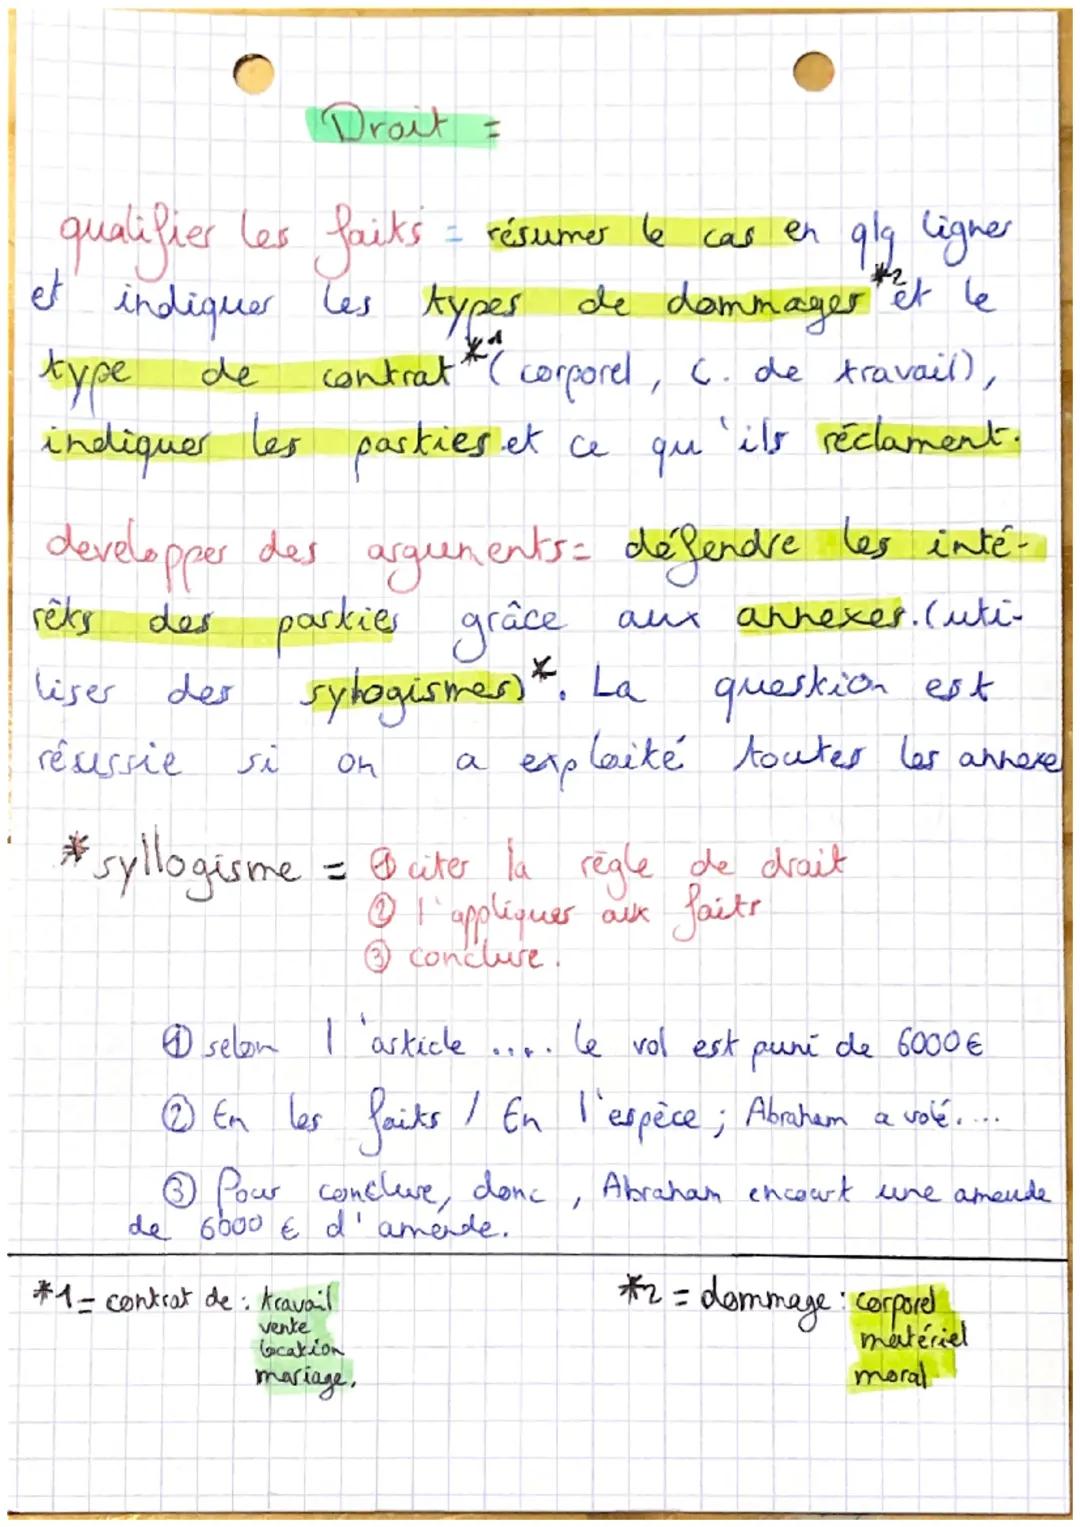 Droit =
qualifier les faits = résumer le cas en qlq lignes
et indiquer les types de dommages *2 et le
type de contrat *1 (corporel, C. de travail),
indiquer les parties et ce qu'ils réclament.
developper des arguments = défendre les inté-
rêts des parties grâce aux annexes. (uti-
liser des syllogismes)*. La question est
réussie si on a exploité toutes les annexe
*syllogisme = ① citer la règle de droit
② l'appliquer aux faits
③ conclure.
① selon l'article .... le vol est puni de 6000€
② En les faits / En l'espèce ; Abraham a volé....
③ Pour conclure, donc, Abraham encourt une amende
de 6000 € d'amende.
*1 = contrat de : travail
vente
location
mariage.
*2 = dommage : corporel
matériel
moral